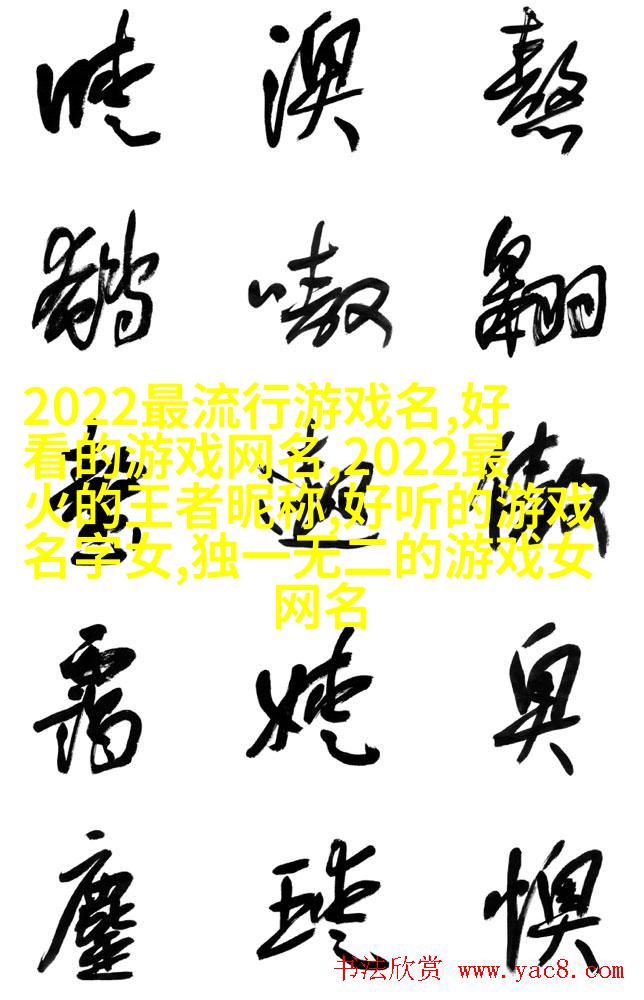 澳 熬
嗷 翱
2022最流行游戏名,好
看的游戏网名,2022最
火的王者昵称,好听的游戏
名字女,独一无二的游戏女
网名
遨 傲
霭 嫒 奥
鏖 瑷 懊
书法欣赏 www.yac8.com